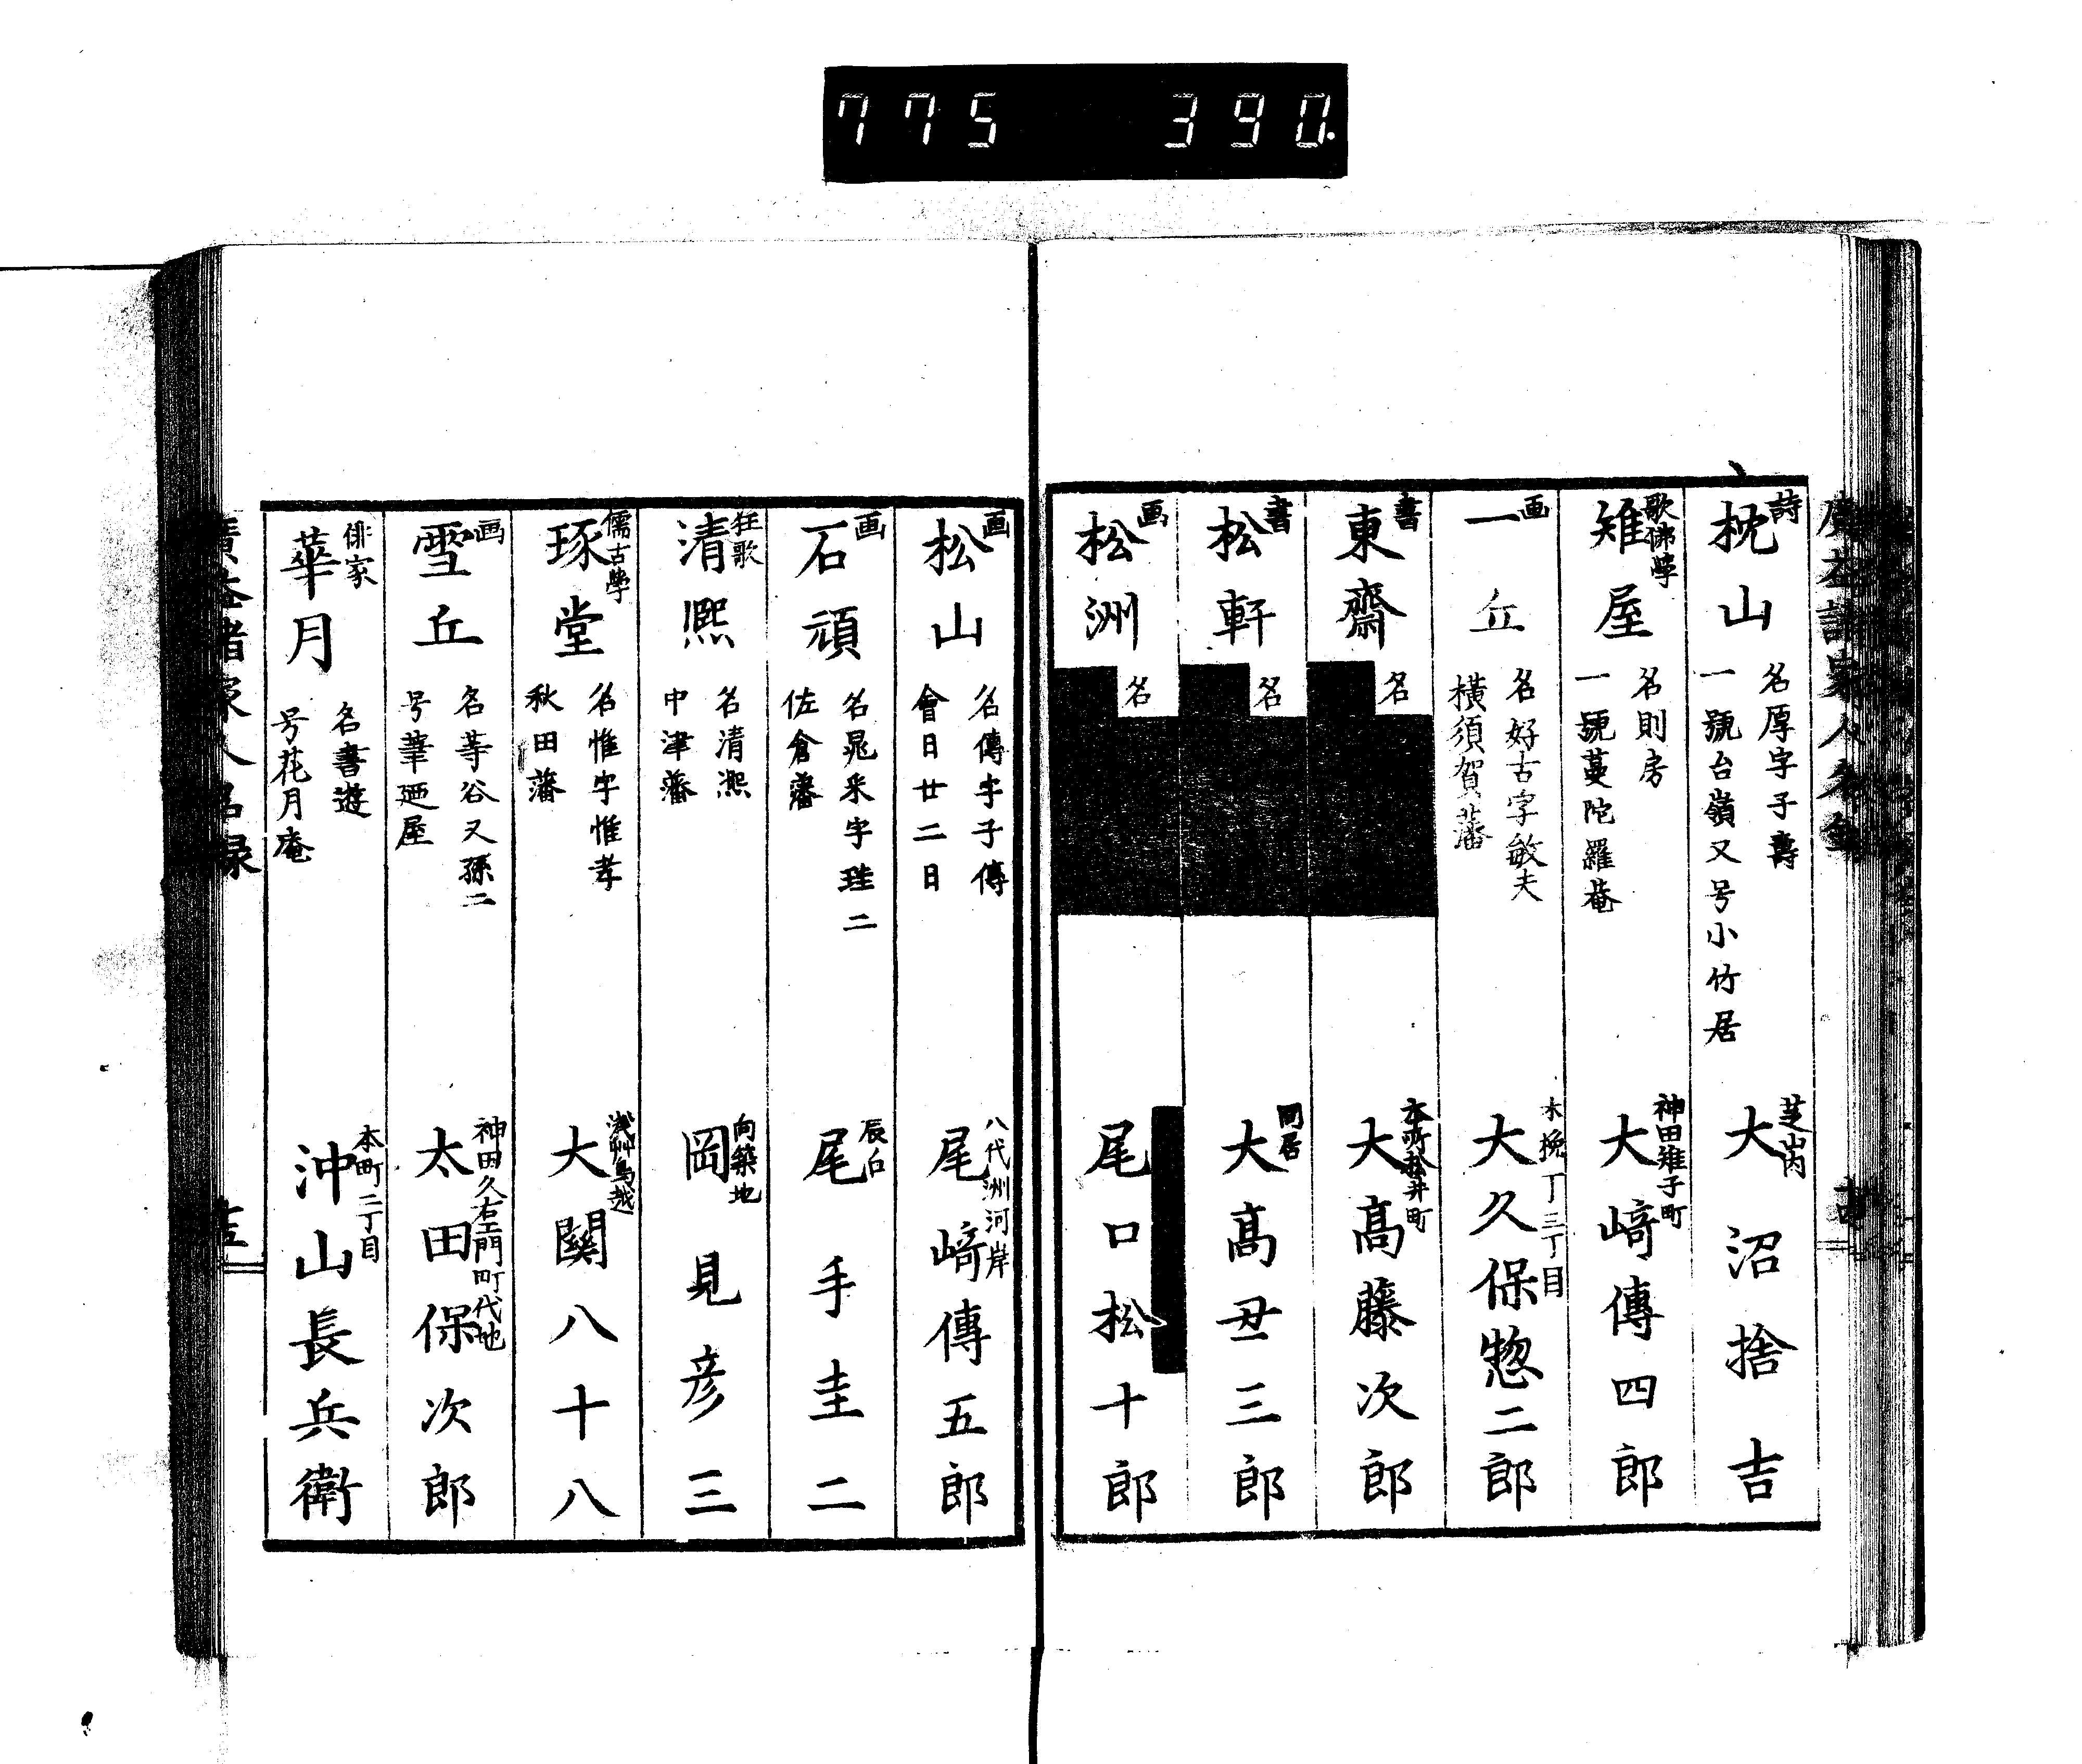 775 390.
詩
枕山
名厚字子壽
一號台嶺又号小竹居
芝山内
大沼捨吉
歌佛學
雉屋
名則房
一號蔓陀羅菴
神田雉子町
大﨑傳四郎
画
一丘
名好古字敏夫
横須賀藩
木挽丁三丁目
大久保惣二郎
書
東齋
名
本所松井町
大髙藤次郎
書
松軒
名
同居
大髙丑三郎
画
松洲
名
尾口松十郎
画
松山
名傳字子傳
會日廿二日
八代洲河岸
尾﨑傳五郎
画
石頑
名晁采字珪二
佐倉藩
辰口
尾手圭二
狂歌
清熈
名清熈
中津藩
向築地
岡見彦三
儒古學
琢堂
名惟字惟孝
秋田藩
浅艸鳥越
大關八十八
画
雪丘
名等谷又孫二
号華廼屋
神田久右エ門町代地
太田保次郎
俳家
華月
名書遊
号花月庵
本町二丁目
沖山長兵衛
廣益諸家人名録